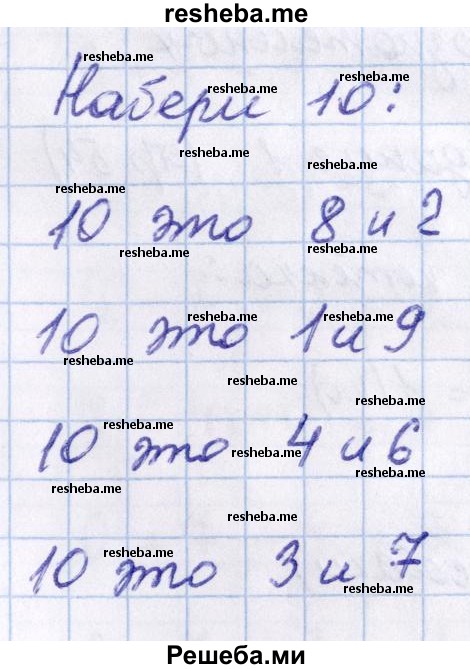 resheba.me
resheba.me
resheba.me
resheba.me
Набери 10:
resheba.me
resheba.me
resheba.me
10 это 8 и 2
resheba.me
resheba.me
resheba.me
resheba.me
10 это 1 и 9
resheba.me
resheba.me
resheba.me
10 это 4 и 6
resheba.me
resheba.me
resheba.me
resheba.me
resheba.me
10 это 3 и 7
resheba.me
Решеба.ми